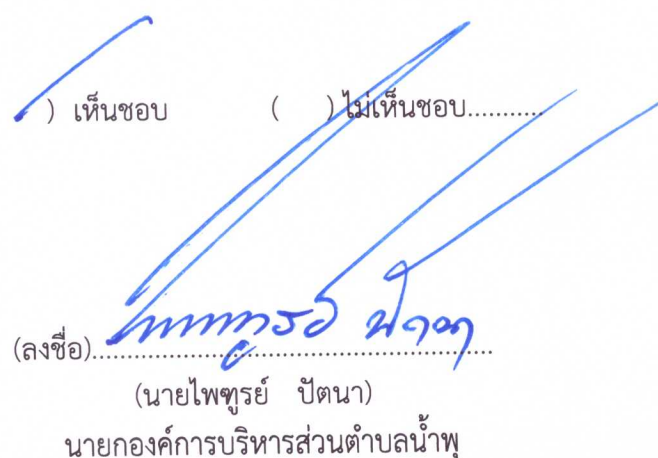 ) เห็นชอบ ( ) ไม่เห็นชอบ...........
(ลงชื่อ)ไพฑูรย์ ปัตนา
(นายไพฑูรย์ ปัตนา)
นายกองค์การบริหารส่วนตำบลน้ำพุ